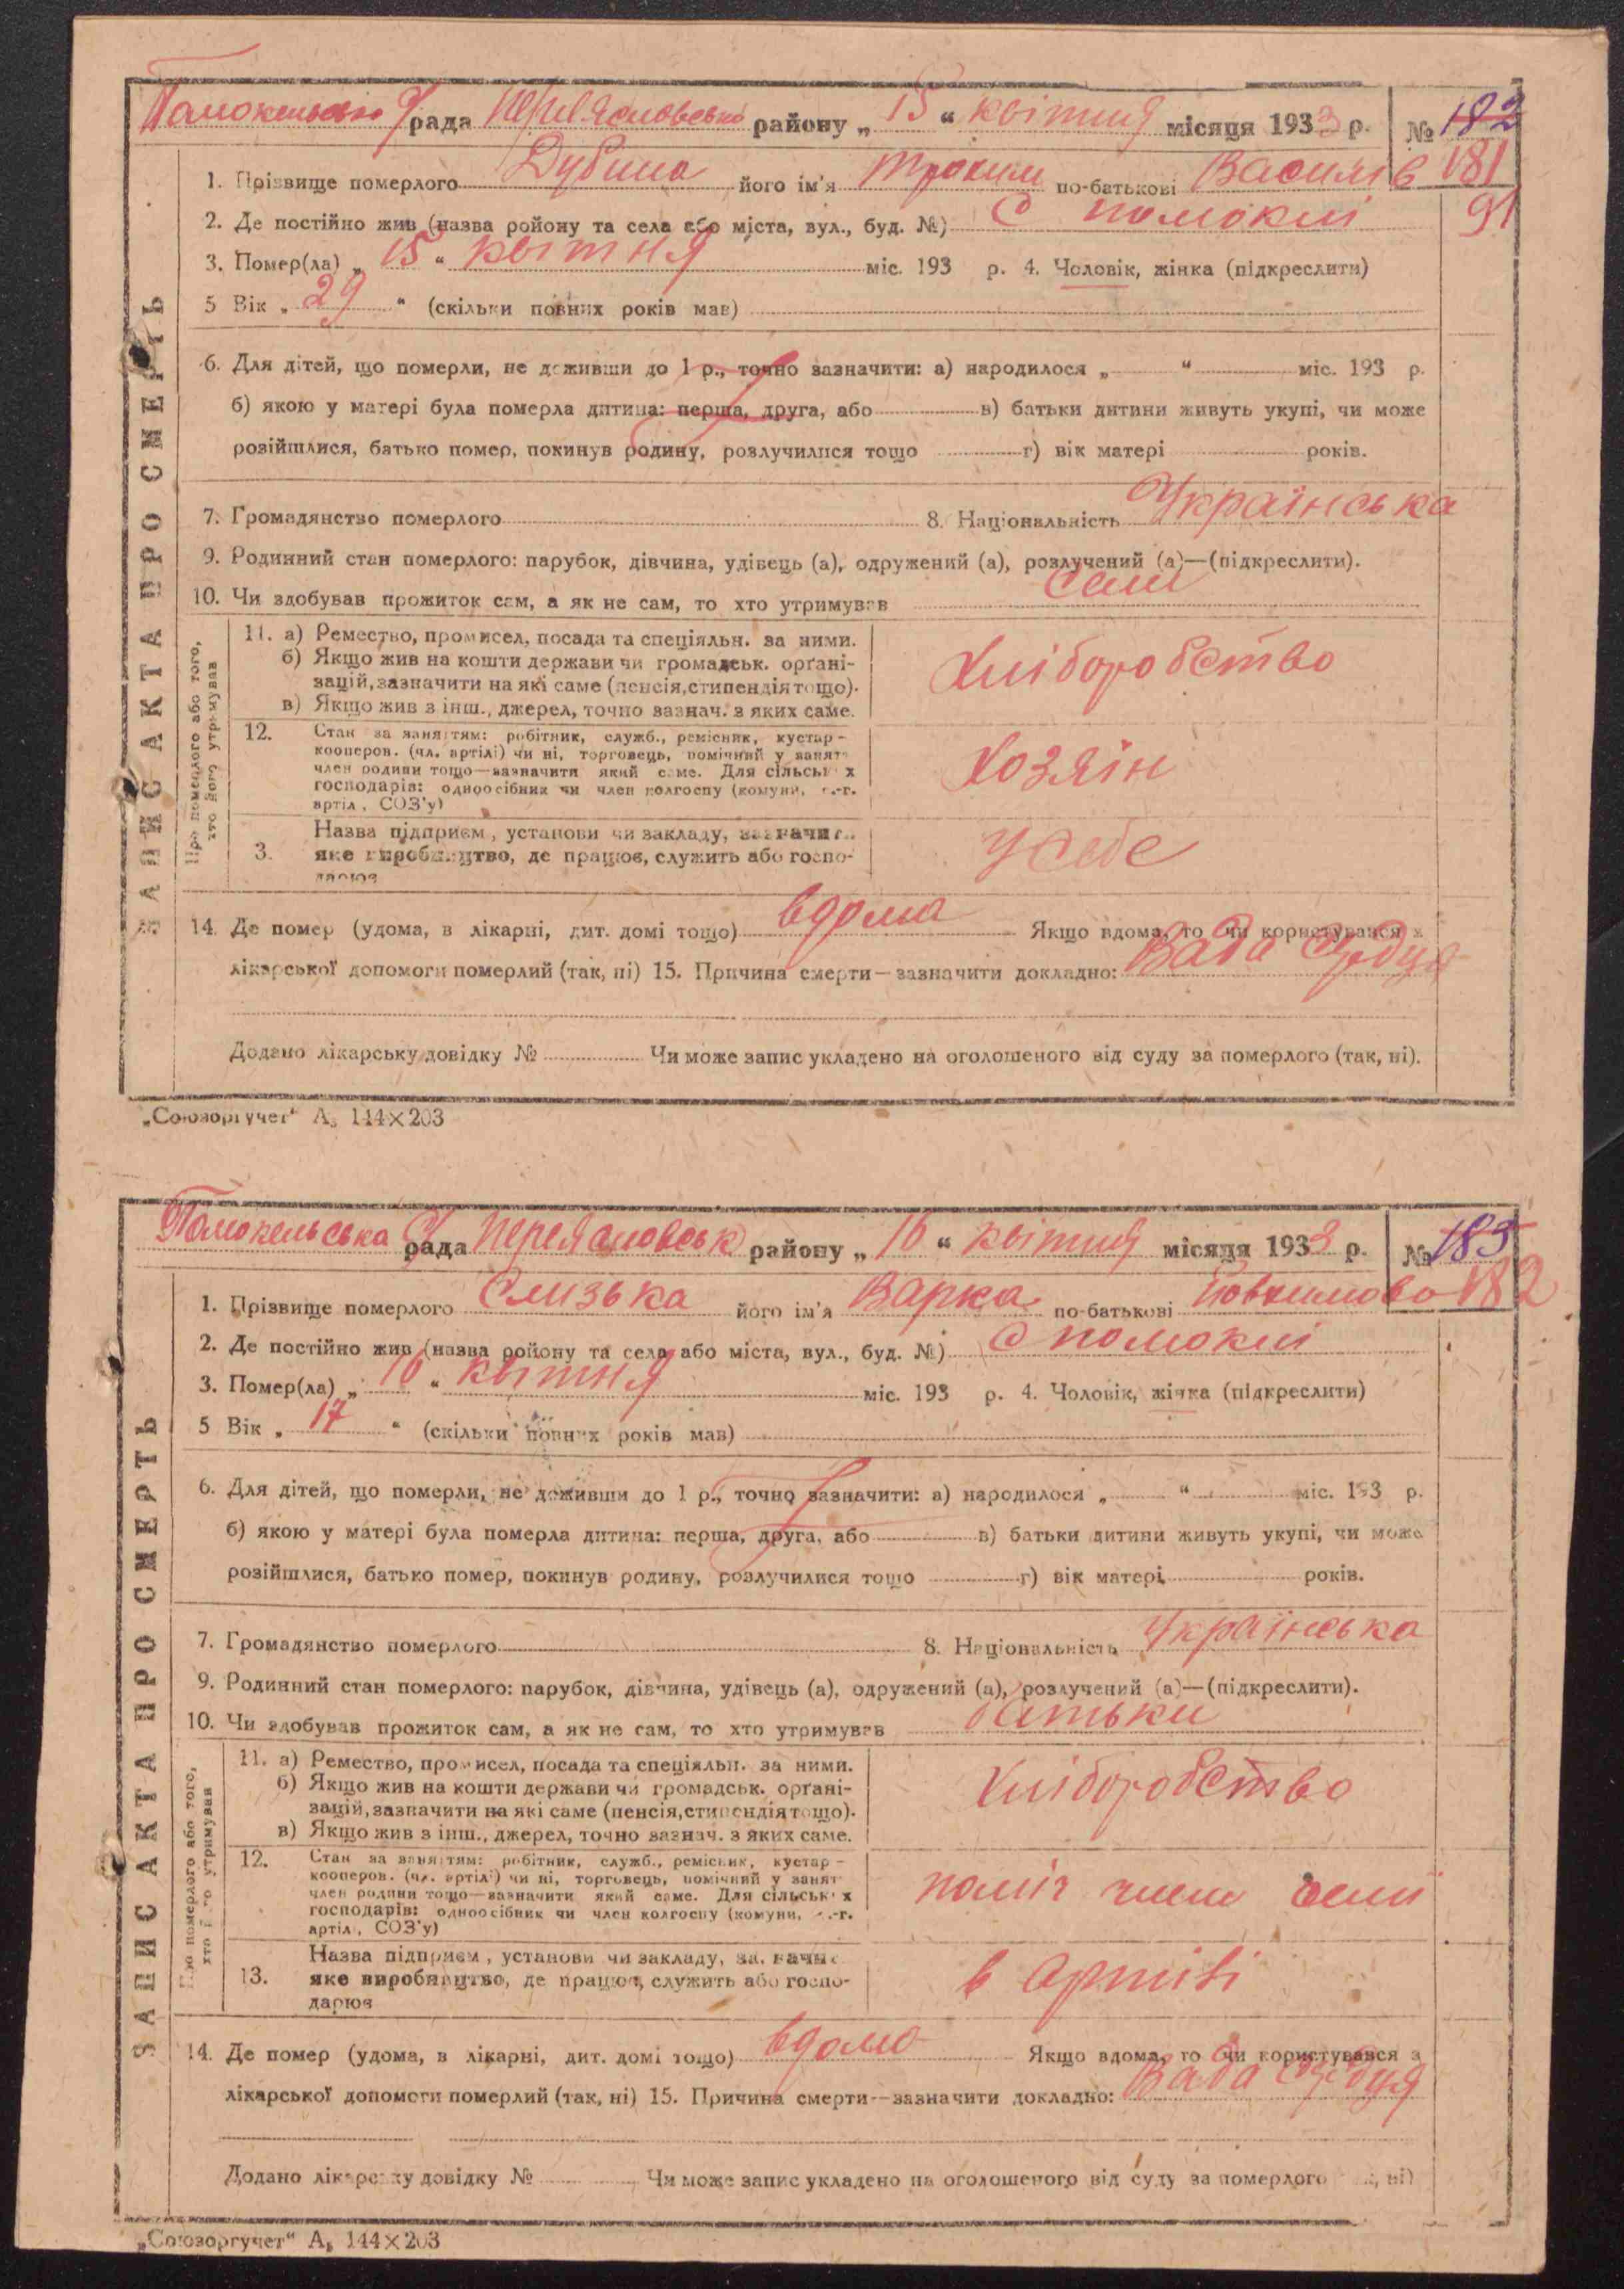 Помокельська с/рада Переяславський району „ 15 “ квітня місяця 1933 р. № 182
1. Прізвище померлого Дубина його ім'я Трохим по-батькові Василів 181
2. Де постійно жив (назва ройону та села або міста, вул., буд. №) с помоклі 91
3. Помер(ла) „ 15 “ квітня міс. 193 р. 4. Чоловік, жінка (підкреслити)
5 Вік „ 29 “ (скільки повних років мав)
6. Для дітей, що померли, не доживши до 1 р., точно зазначити: а) народилося „ “ міс. 193 р.
б) якою у матері була померла дитина: перша, друга, або в) батьки дитини живуть укупі, чи може
розійшлися, батько помер, покинув родину, розлучилися тощо г) вік матері років.
7. Громадянство померлого 8. Національність Українська
9. Родинний стан померлого: парубок, дівчина, удівець (а), одружений (а), розлучений (а)—(підкреслити).
10. Чи здобував прожиток сам, а як не сам, то хто утримував сам
11. а) Ремество, промисел, посада та спеціяльн. за ними.
б) Якщо жив на кошти держави чи громадськ. орґані-
зацій, зазначити на які саме (пенсія, стипендія тощо).
в) Якщо жив з інш., джерел, точно зазнач. з яких саме.
Хліборобство
12. Стан за заняттям: робітник, служб., ремісник, кустар-
кооперов. (чл. артілі) чи ні, торговець, помічний у занят
член родини тощо—зазначити який саме. Для сільських
господарів: одноосібник чи член колгоспу (комуни, с.-г.
артіл, СОЗ'у)
Хозяїн
3. Назва підприєм, установи чи закладу, зазначити
яке виробництво, де працює, служить або госпо-
дарює
У себе
14. Де помер (удома, в лікарні, дит. домі тощо) вдома Якщо вдома, то чи користувався з
лікарської допомоги померлий (так, ні) 15. Причина смерти—зазначити докладно: Вада сердця
Додано лікарську довідку № Чи може запис укладено на оголошеного від суду за померлого (так, ні).
ЗАПИС АКТА ПРО СМЕРТЬ
Про померлого або того,
хто його утримував
„Союзоргучет“ А₅ 144×203
Помокельська с/рада Переяславськ району „ 16 “ квітня місяця 1933 р. № 183
1. Прізвище померлого Слизька його ім'я Варка по-батькові Йовхимово 182
2. Де постійно жив (назва ройону та села або міста, вул., буд. №) с помоклі
3. Помер(ла) „ 16 “ квітня міс. 193 р. 4. Чоловік, жінка (підкреслити)
5 Вік „ 17 “ (скільки повних років мав)
6. Для дітей, що померли, не доживши до 1 р., точно зазначити: а) народилося „ “ міс. 193 р.
б) якою у матері була померла дитина: перша, друга, або в) батьки дитини живуть укупі, чи може
розійшлися, батько помер, покинув родину, розлучилися тощо г) вік матері років.
7. Громадянство померлого 8. Національність Українська
9. Родинний стан померлого: парубок, дівчина, удівець (а), одружений (а), розлучений (а)—(підкреслити).
10. Чи здобував прожиток сам, а як не сам, то хто утримував батьки
11. а) Ремество, промисел, посада та спеціяльн. за ними.
б) Якщо жив на кошти держави чи громадськ. орґані-
зацій, зазначити на які саме (пенсія, стипендія тощо).
в) Якщо жив з інш., джерел, точно зазнач. з яких саме.
Хліборобство
12. Стан за заняттям: робітник, служб., ремісник, кустар-
кооперов. (чл. артілі) чи ні, торговець, помічний у занят
член родини тощо—зазначити який саме. Для сільських
господарів: одноосібник чи член колгоспу (комуни, с.-г.
артіл, СОЗ'у)
поміч член семї
13. Назва підприєм, установи чи закладу, зазначити
яке виробництво, де працює, служить або госпо-
дарює
в Артілі
14. Де помер (удома, в лікарні, дит. домі тощо) вдома Якщо вдома, то чи користувався з
лікарської допомоги померлий (так, ні) 15. Причина смерти—зазначити докладно: Вада сердця
Додано лікарську довідку № Чи може запис укладено на оголошеного від суду за померлого ні)
ЗАПИС АКТА ПРО СМЕРТЬ
Про померлого або того,
хто його утримував
„Союзоргучет“ А₅ 144×203